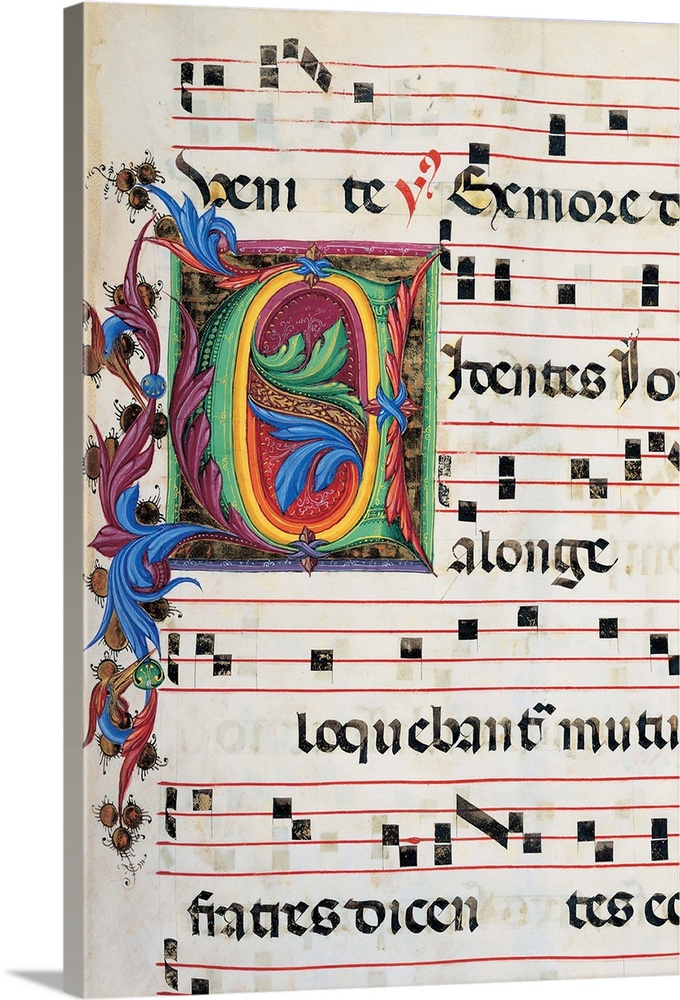 veni te V Ex more d
V identes Jo
alonge
loquebant mutu
fratres dicen tes ec